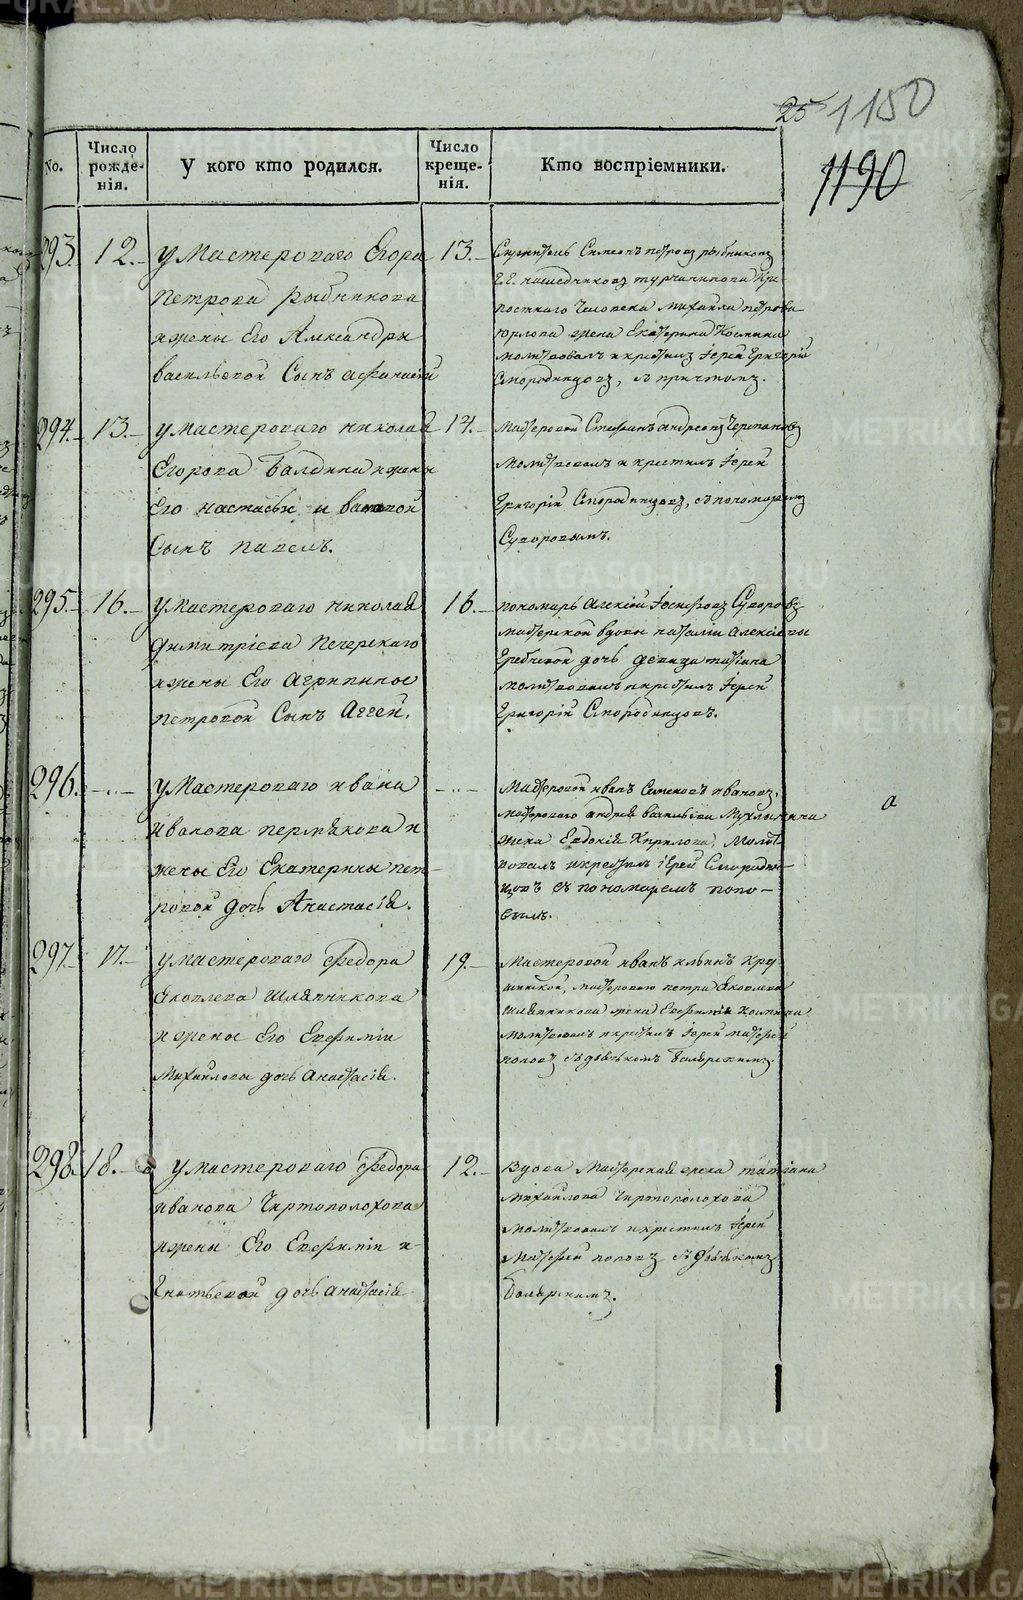 25 1150
1190
No.
Число рожде-нія.
У кого кто родился.
Число креще-нія.
Кто воспріемники.
293. 12.
у Мастероваго Егора
Петрова Рыбникова
и жены Его Александры
васильевой Сынъ афанасій
13.
Служитель Симеонъ петровъ рыбниковъ
Г.Г. наследниковъ турчанинова Кре-
постнаго Человека михайла петрова
Юрлова жена Екатерина Космина
молитвовалъ и крестилъ Іерей Григорій
Смородинцовъ, съ причтомъ.
294. 13.
у мастероваго николая
Егорова балдина и жены
Его настасьи
Сынъ павелъ.
14.
Мастеровой Стефанъ андреевъ Черепановъ
Молитвовалъ и крестилъ Іерей
Григорій Смородинцовъ, съ пономаремъ
Суворовымъ.
295. 16.
у мастероваго николая
Димитріева Печерскаго
и жены Его Агрипины
петровой Сынъ Аггей.
16.
пономарь Алексій Іосифовъ Суворовъ
мастерской вдовы наталіи алексіевы
Гребневой дочь девица татіана
молитвовалъ и крестилъ Іерей
Григорій Смородинцовъ.
296. -..-
у Мастероваго ивана
иванова пермякова и
жены Его Екатерины пет-
ровой дочь Анастасія.
-..-
Мастеровой иванъ Семеновъ ивановъ,
мастероваго андрея васильева Мухлынина
жена Евдокія Кирилова, Молит-
вовалъ и крестилъ іерей Смородин-
цовъ съ пономаремъ попо-
вымъ.
а
297. 17.
у мастероваго Федора
Яковлева Шляпникова
и жены Его Евфиміи
Михайловы дочь анастасія.
19.
Мастеровой иванъ ильинъ Кру-
шинской, мастероваго петра Яковлева
шляпникова жена Евфимія Космина
молитвовалъ и крестилъ Іерей матфей
поповъ съ дьячкомъ боярскимъ.
298. 18.
у мастероваго Федора
иванова Чертополохова
и жены Его Евфиміи и-
гнатьевой дочь анастасія
12.
Вдова Мастерская жена татіана
Михайлова Чертополохова
молитвовалъ и крестилъ Іерей
Матфей поповъ съ дьячкомъ
Боярскимъ.
METRIKI.GASO-URAL.RU